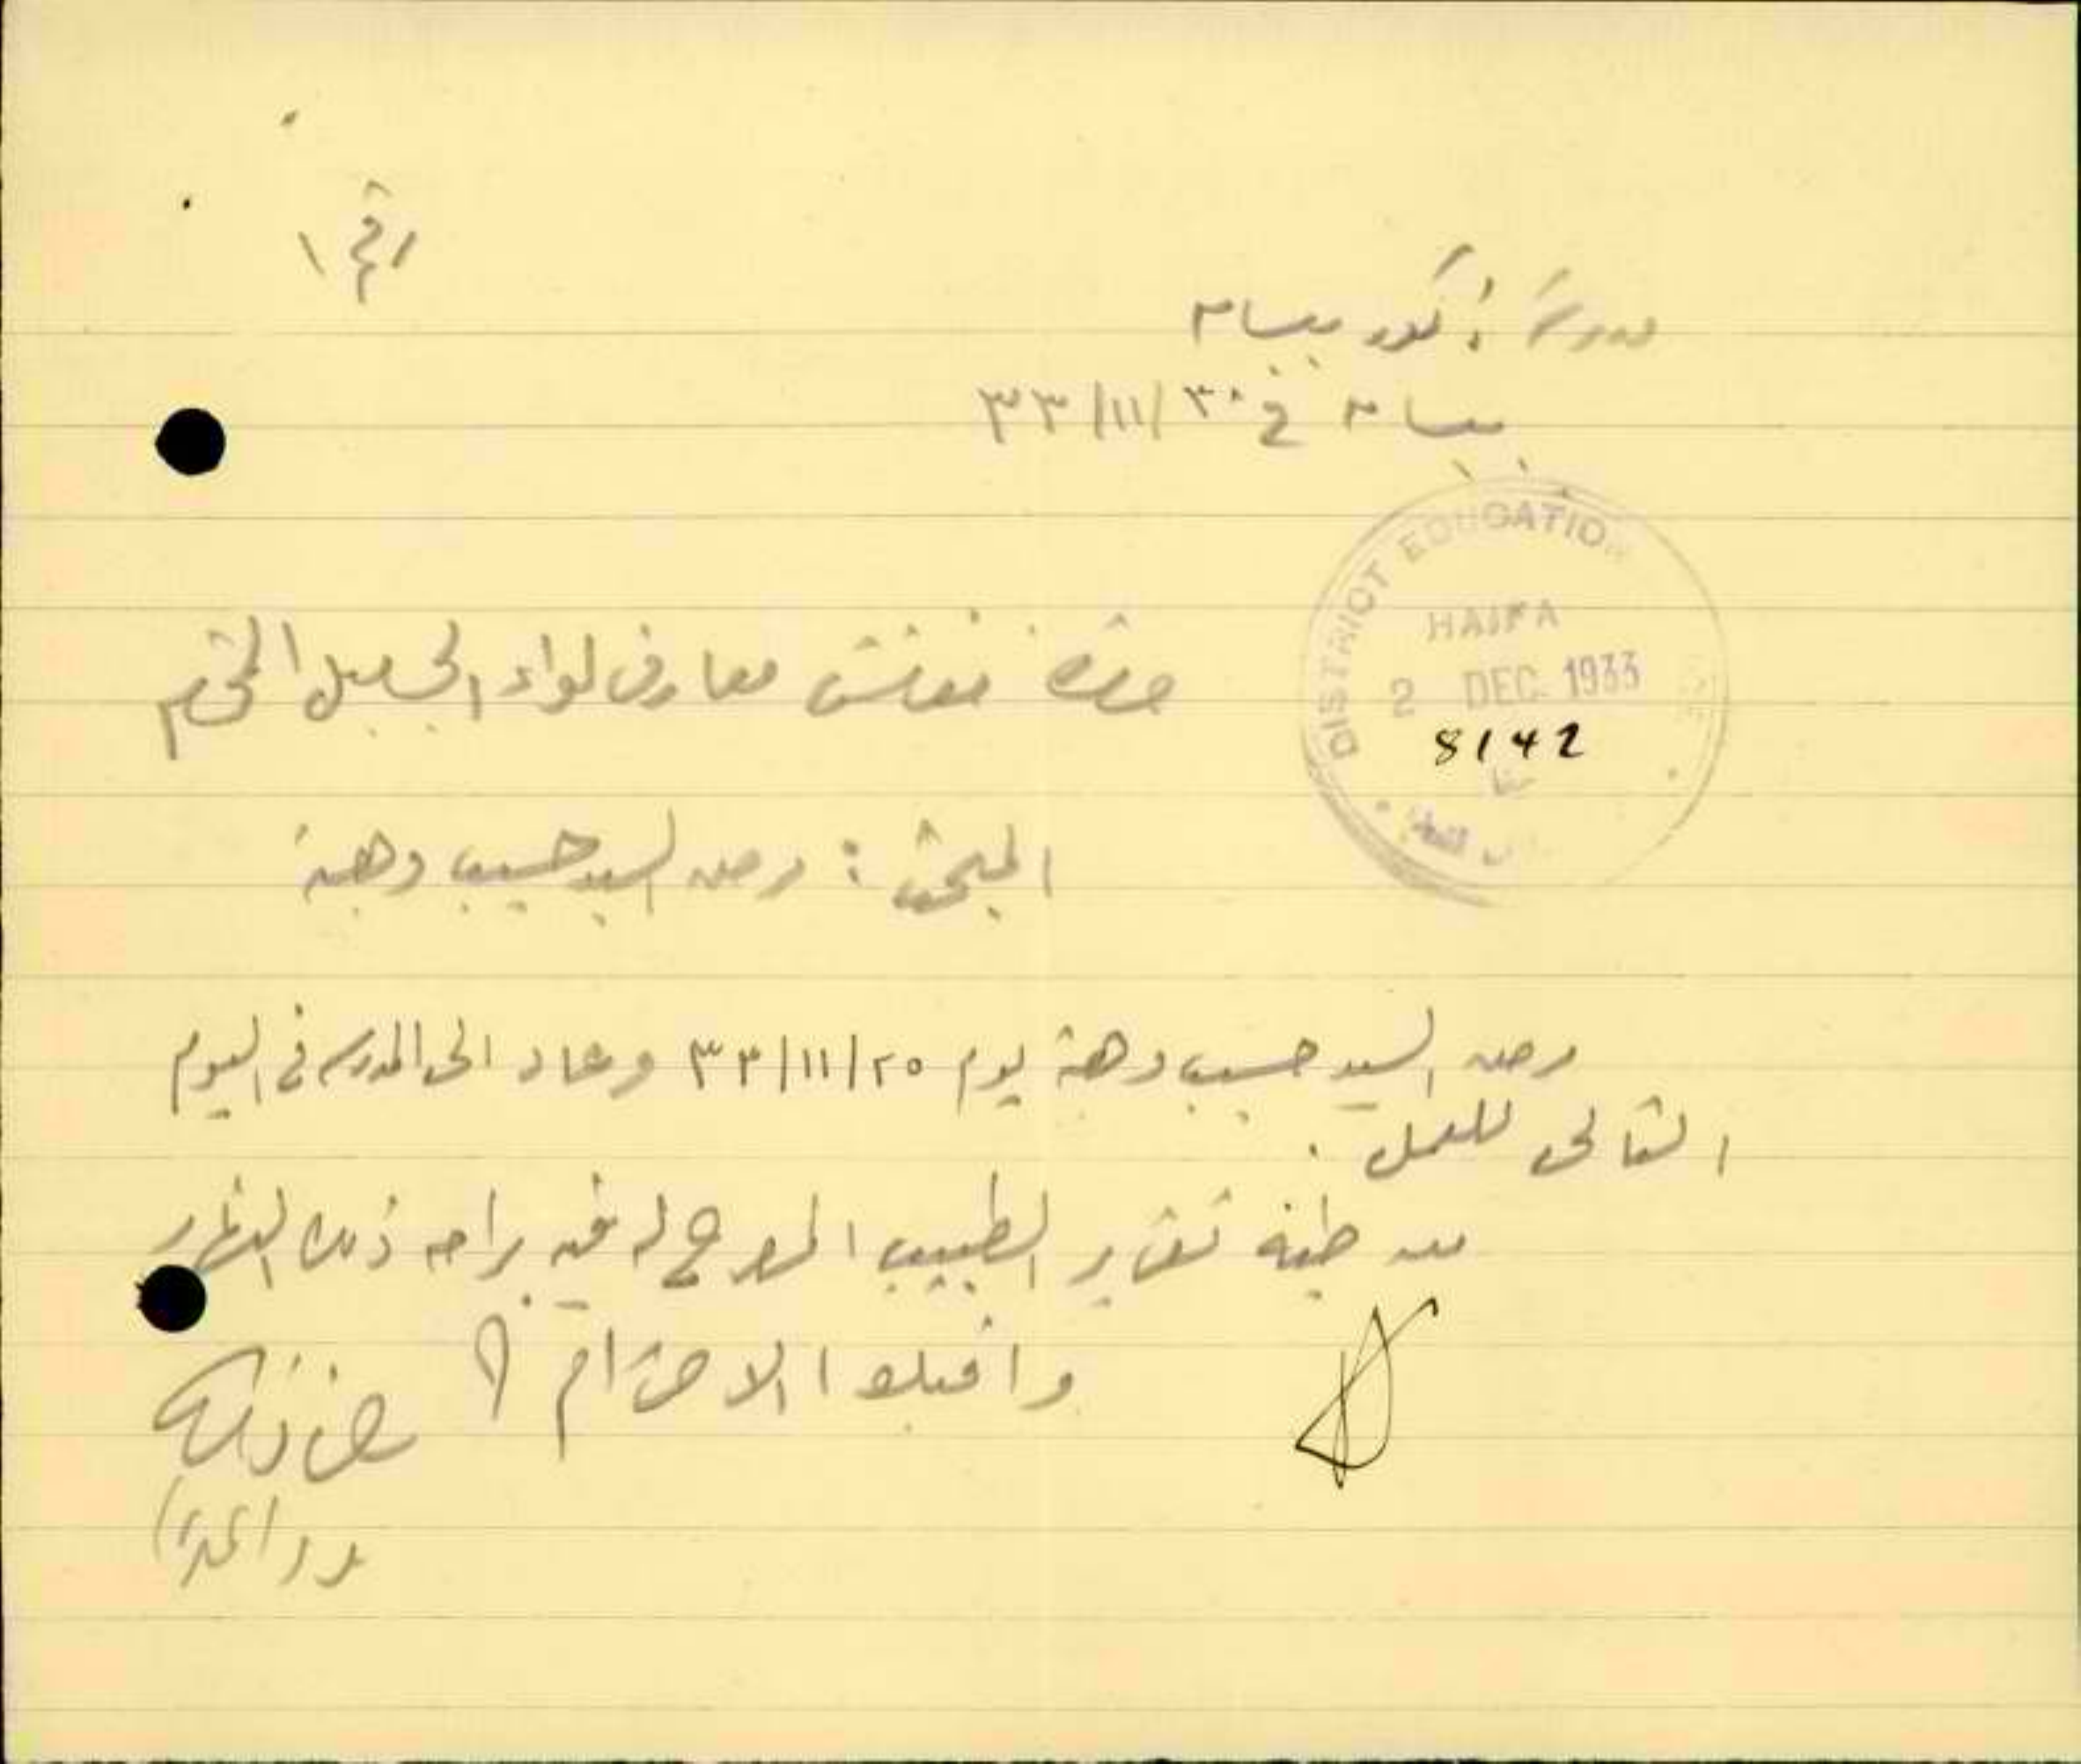 رقم ١
مدرسة ذكور بيسان
بيسان في ٣٠/١١/٣٣
DISTRICT EDUCATION
HAIFA
2 DEC 1933
8142
حيفا
حضرة مفتش معارف لواء الجليل المحترم
المبحث : مرض السيد حسيب وهبة
مرض السيد حسيب وهبة يوم ٢٥/١١/٣٣ وعاد الى المدرسة في اليوم
التالي للعمل .
طيه تقرير الطبيب المصرح له فيه براحة ذلك النهار
واقبلوا الاحترام